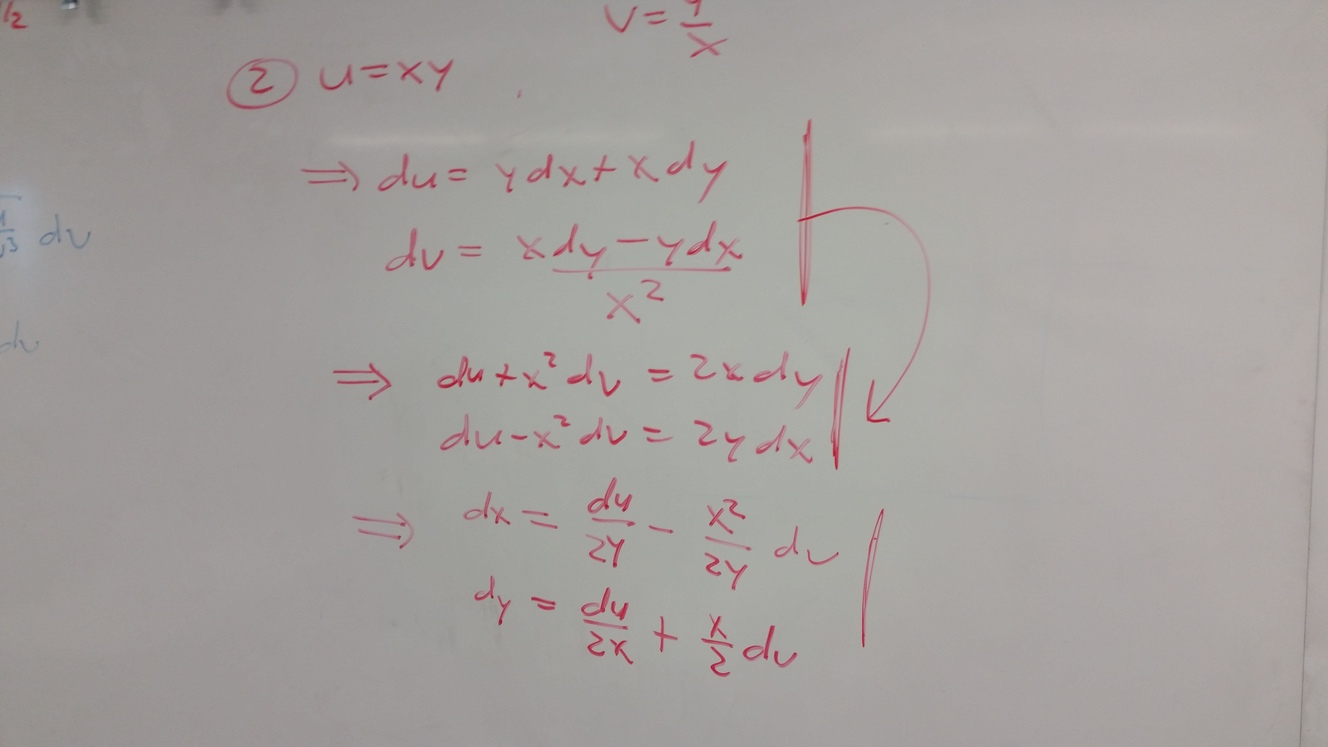 1/2
v = y/x
② u = xy
⇒ du = y dx + x dy
dv = (x dy − y dx)/x²
dv
⇒ du + x² dv = 2x dy
dv
du − x² dv = 2y dx
⇒ dx = du/2y − x²/2y dv
dy = du/2x + x/2 dv